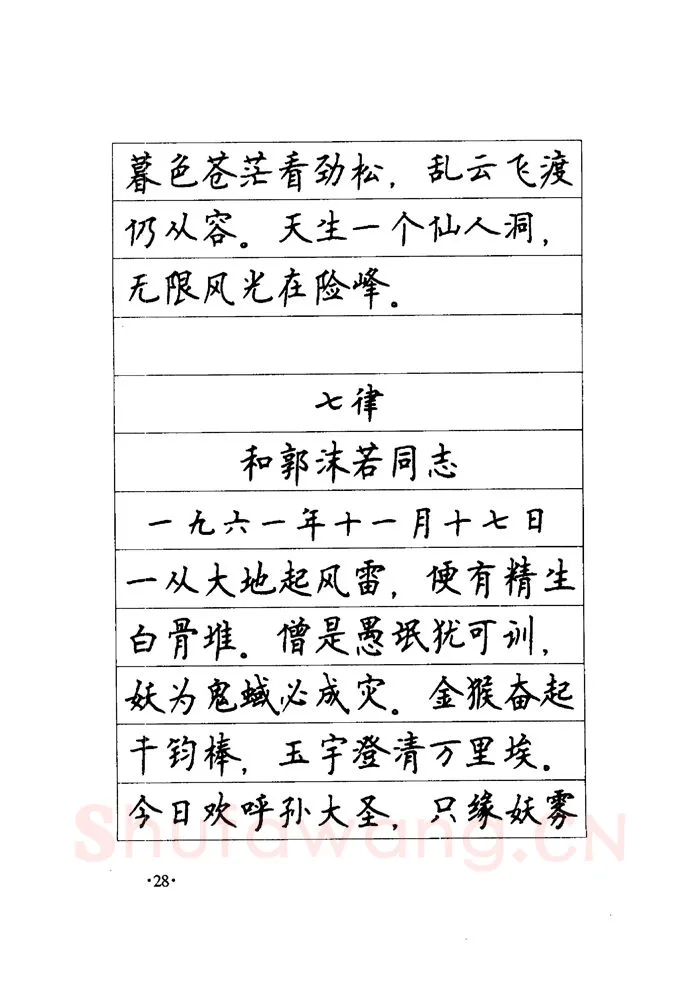 暮色苍茫看劲松，乱云飞渡
仍从容。天生一个仙人洞，
无限风光在险峰。
七律
和郭沫若同志
一九六一年十一月十七日
一从大地起风雷，便有精生
白骨堆。僧是愚氓犹可训，
妖为鬼蜮必成灾。金猴奋起
千钧棒，玉宇澄清万里埃。
今日欢呼孙大圣，只缘妖雾
Shufawang.CN
·28·